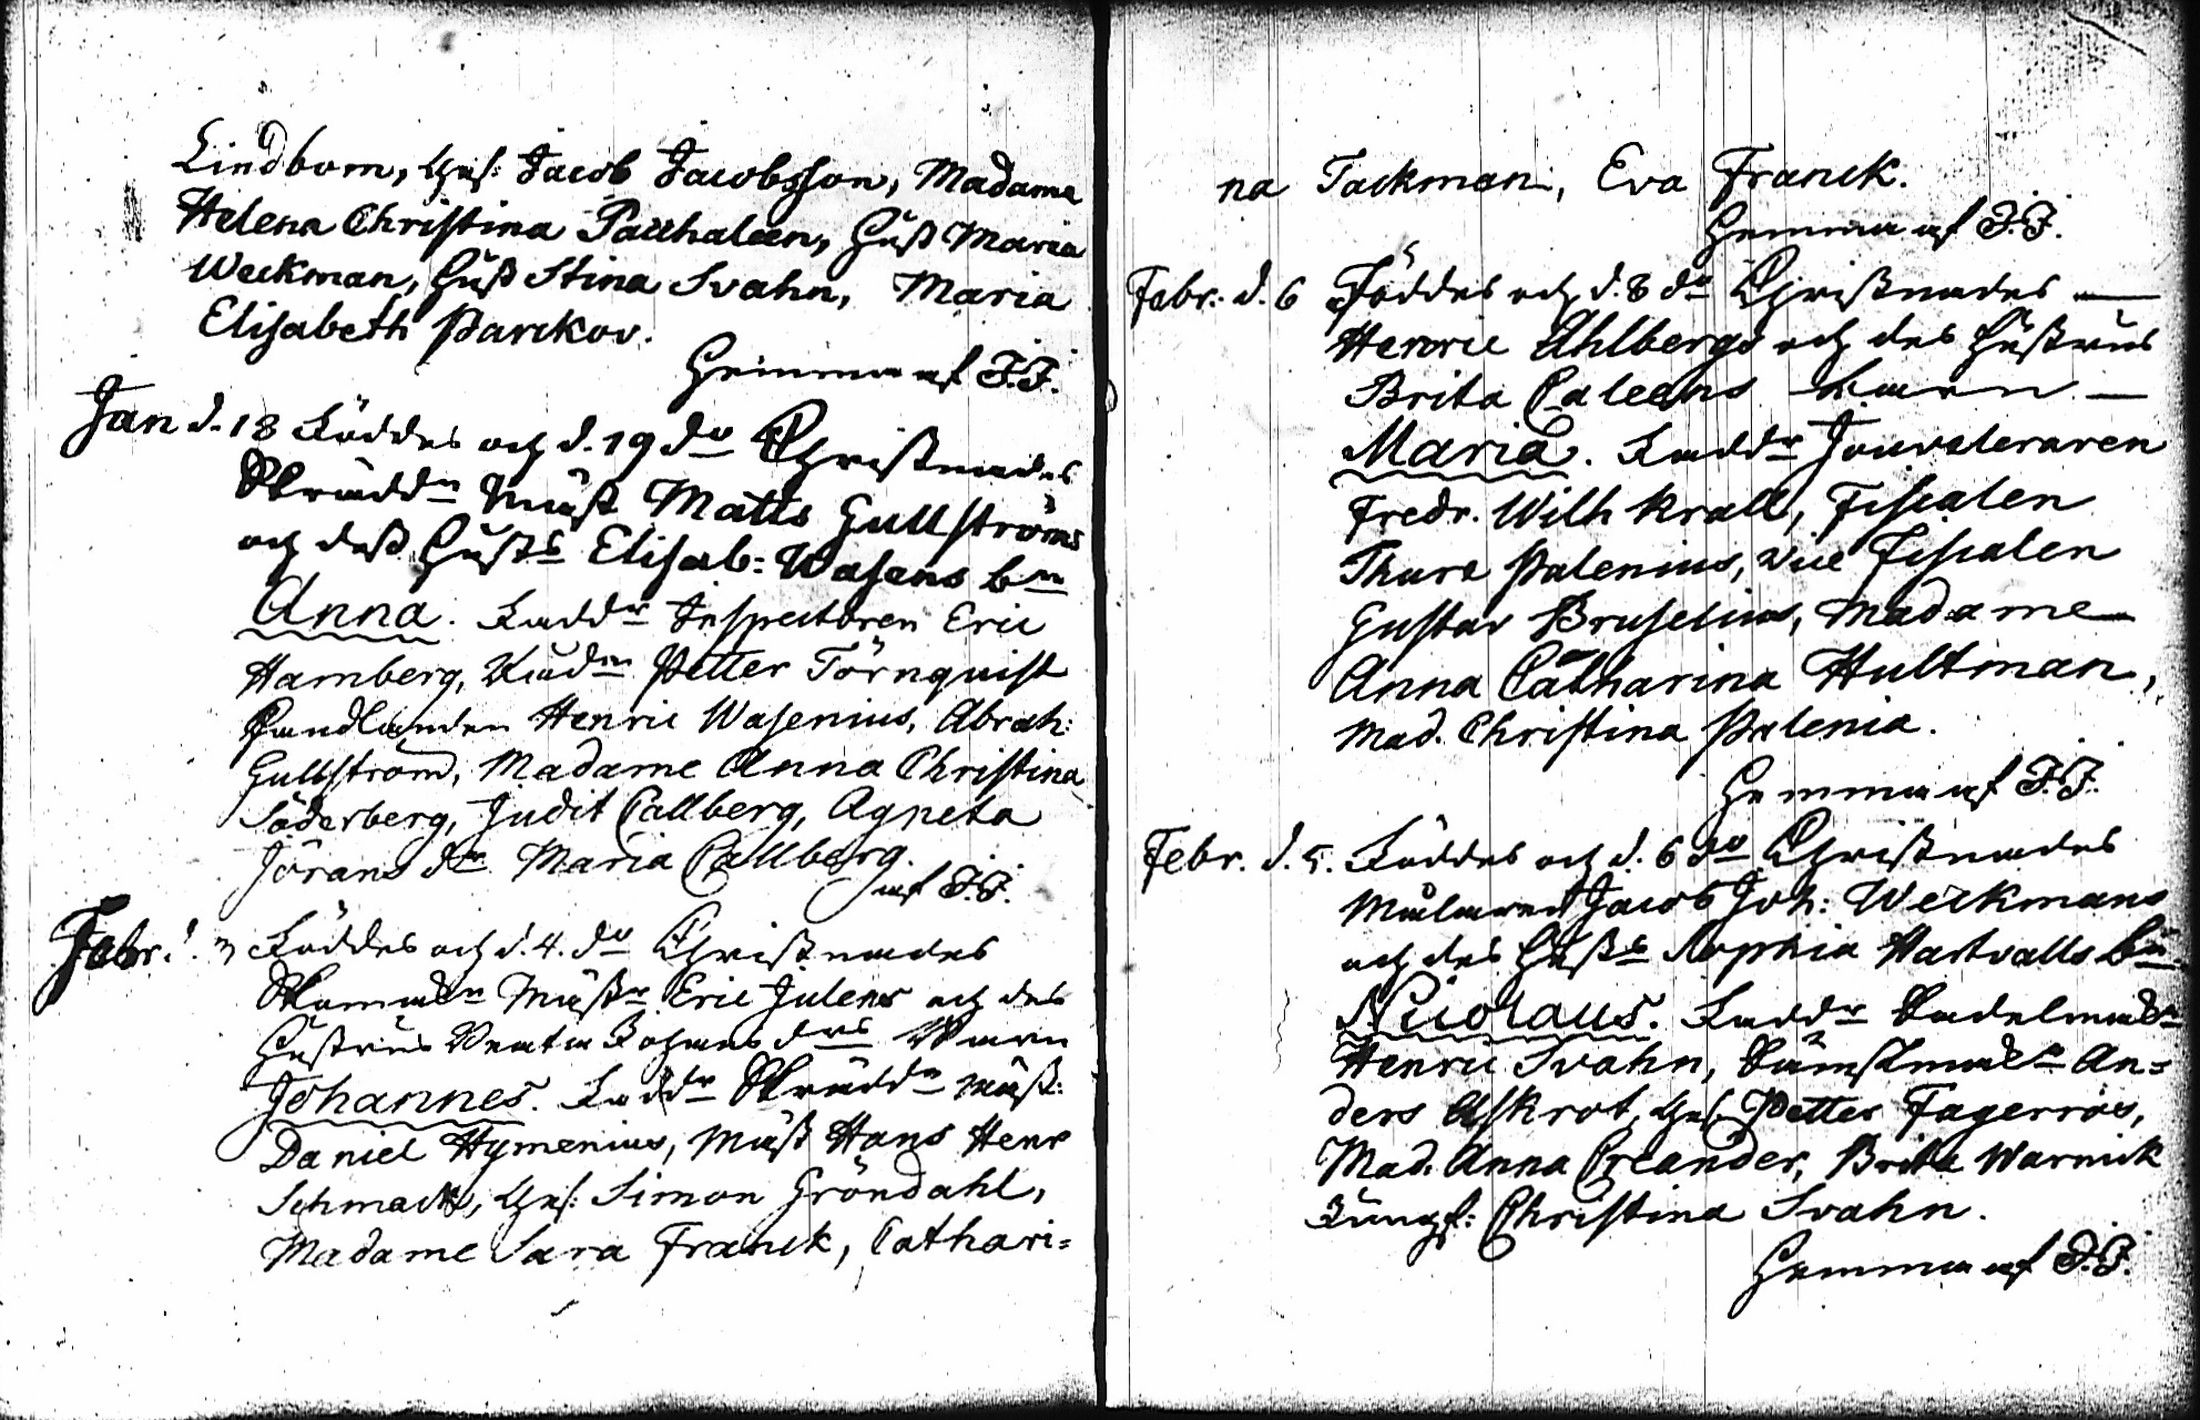 Lindbom, Ges: Jacob Jacobsson, Madame
Helena Christina Pacchaleen, Hust Maria
Weckman, Hust Stina Svahn, Maria
Elisabeth Parckov.
Hemma af J.J.
Jan d. 18 Föddes och d. 19 do Christnades
Skrädd n Mäst Matts Gullströms
och dess Hust s Elisab: Wasens b n
Anna. Fadd r Inspectoren Eric
Hamberg, Petter Törnquist
Handlanden Henric Wasenius, Abrah:
Gullström, Madame Anna Christina
Söderberg, Judit Callberg, Agneta
Jörans dr Maria Callberg.
af J.J.
Febr. d. 3 Föddes och d. 4. do Christnades
Mäst r Eric Julens och des
Hustrus Beata Johans drs Barn
Johannes. Fadd r Skrädd n Mäst:
Daniel Hymenius, Mäst Hans Henr
Schmack, Ges: Simon Gröndahl,
Madame Sara Franck, Cathari=
na Tackman, Eva Franck.
Hemma af J.J.
Febr. d. 6 Föddes och d. 8 do Christnades
Henric Ahlbergs och des Hustrus
Brita Caleens barn
Maria. Fadd r Jouveleraren
Fredr. Wilh Krall, Fiscalen
Thure Palenius, Vice Fiscalen
Gustav Bruselius, Madame
Anna Catharina Hultman,
Mad. Christina Palenia.
Hemma af J.J.
Febr. d. 5. Föddes och d. 6 do Christnades
Målaren Jacob Joh: Weckmans
och des Hust s Sophia Hartvalls b n
Nicolaus. Fadd r Sadelmak n
Henric Svahn, An=
ders Askrot, Ges. Petter Fagerroos,
Mad. Anna Creander, Brita Warnick
Jungf: Christina Svahn.
Hemma af J.J.